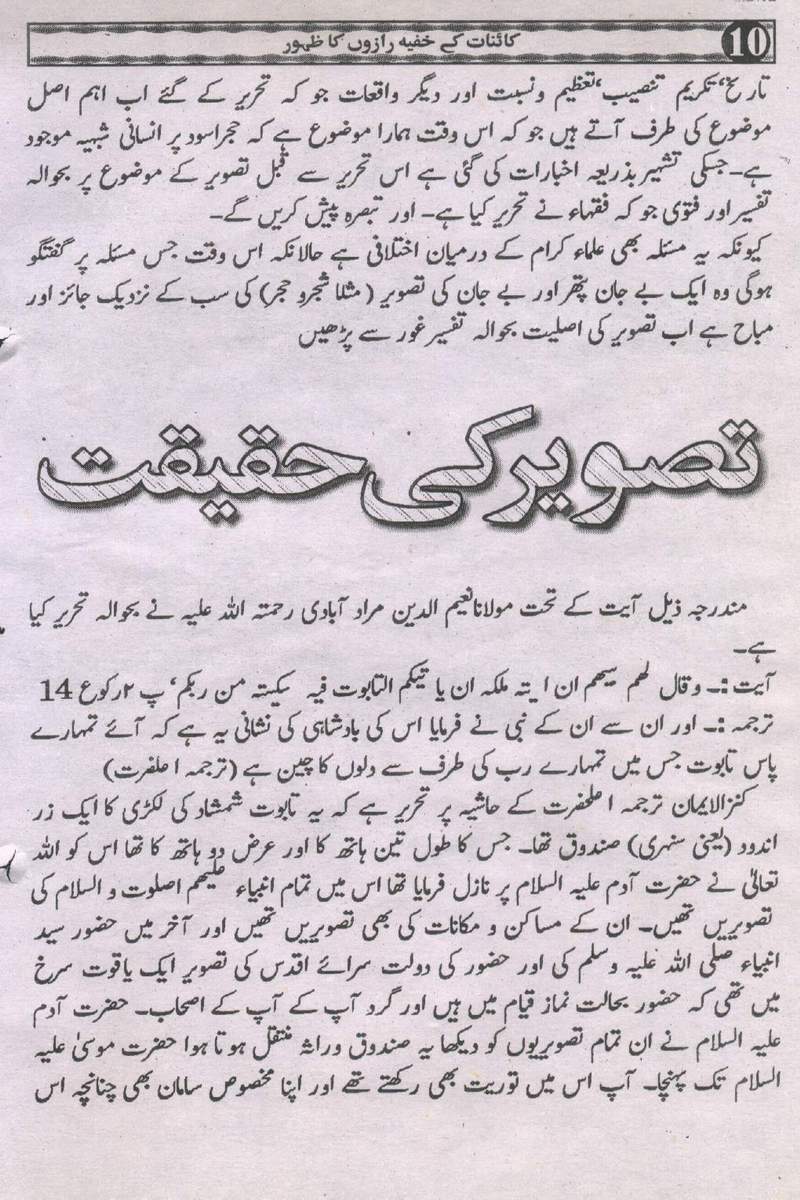 کائنات کے خفیہ رازوں کا ظہور 10
تاریخ، تکریم تنصیب، تعظیم ونسبت اور دیگر واقعات جو کہ تحریر کے گئے اب اہم اصل
موضوع کی طرف آتے ہیں جو کہ اس وقت ہمارا موضوع ہے کہ حجراسود پر انسانی شبیہ موجود
ہے۔ جسکی تشہیر بذریعہ اخبارات کی گئی ہے اس تحریر سے قبل تصویر کے موضوع پر بحوالہ
تفسیر اور فتوی جو کہ فقہاء نے تحریر کیا ہے۔ اور تبصرہ پیش کریں گے۔
کیونکہ یہ مسئلہ بھی علماء کرام کے درمیان اختلافی ہے حالانکہ اس وقت جس مسئلہ پر گفتگو
ہوگی وہ ایک بے جان پتھر اور بے جان کی تصویر (مثلا شجرو حجر) کی سب کے نزدیک جائز اور
مباح ہے اب تصویر کی اصلیت بحوالہ تفسیر غور سے پڑھیں
تصویر کی حقیقت
مندرجہ ذیل آیت کے تحت مولانا نعیم الدین مراد آبادی رحمتہ اللہ علیہ نے بحوالہ تحریر کیا
ہے۔
آیت :۔ وقال لھم نبیھم ان ایتہ ملکہ ان یا تیکم التابوت فیہ سکیتہ من ربکم، پ ۲ رکوع 14
ترجمہ :۔ اور ان سے ان کے نبی نے فرمایا اس کی بادشاہی کی نشانی یہ ہے کہ آئے تمہارے
پاس تابوت جس میں تمہارے رب کی طرف سے دلوں کا چین ہے (ترجمہ اعلحضرت)
کنزالایمان ترجمہ اعلحضرت کے حاشیہ پر تحریر ہے کہ یہ تابوت شمشاد کی لکڑی کا ایک زر
اندود (یعنی سنہری) صندوق تھا۔ جس کا طول تین ہاتھ کا اور عرض دو ہاتھ کا تھا اس کو اللہ
تعالیٰ نے حضرت آدم علیہ السلام پر نازل فرمایا تھا اس میں تمام انبیاء علیھم اصلوت و السلام کی
تصویریں تھیں۔ ان کے مساکن و مکانات کی بھی تصویریں تھیں اور آخر میں حضور سید
انبیاء صلی اللہ علیہ وسلم کی اور حضور کی دولت سرائے اقدس کی تصویر ایک یاقوت سرخ
میں تھی کہ حضور بحالت نماز قیام میں ہیں اور گرد آپ کے آپ کے اصحاب۔ حضرت آدم
علیہ السلام نے ان تمام تصویریوں کو دیکھا یہ صندوق وراثۃ منتقل ہوتا ہوا حضرت موسیٰ علیہ
السلام تک پہنچا۔ آپ اس میں توریت بھی رکھتے تھے اور اپنا مخصوص سامان بھی چنانچہ اس